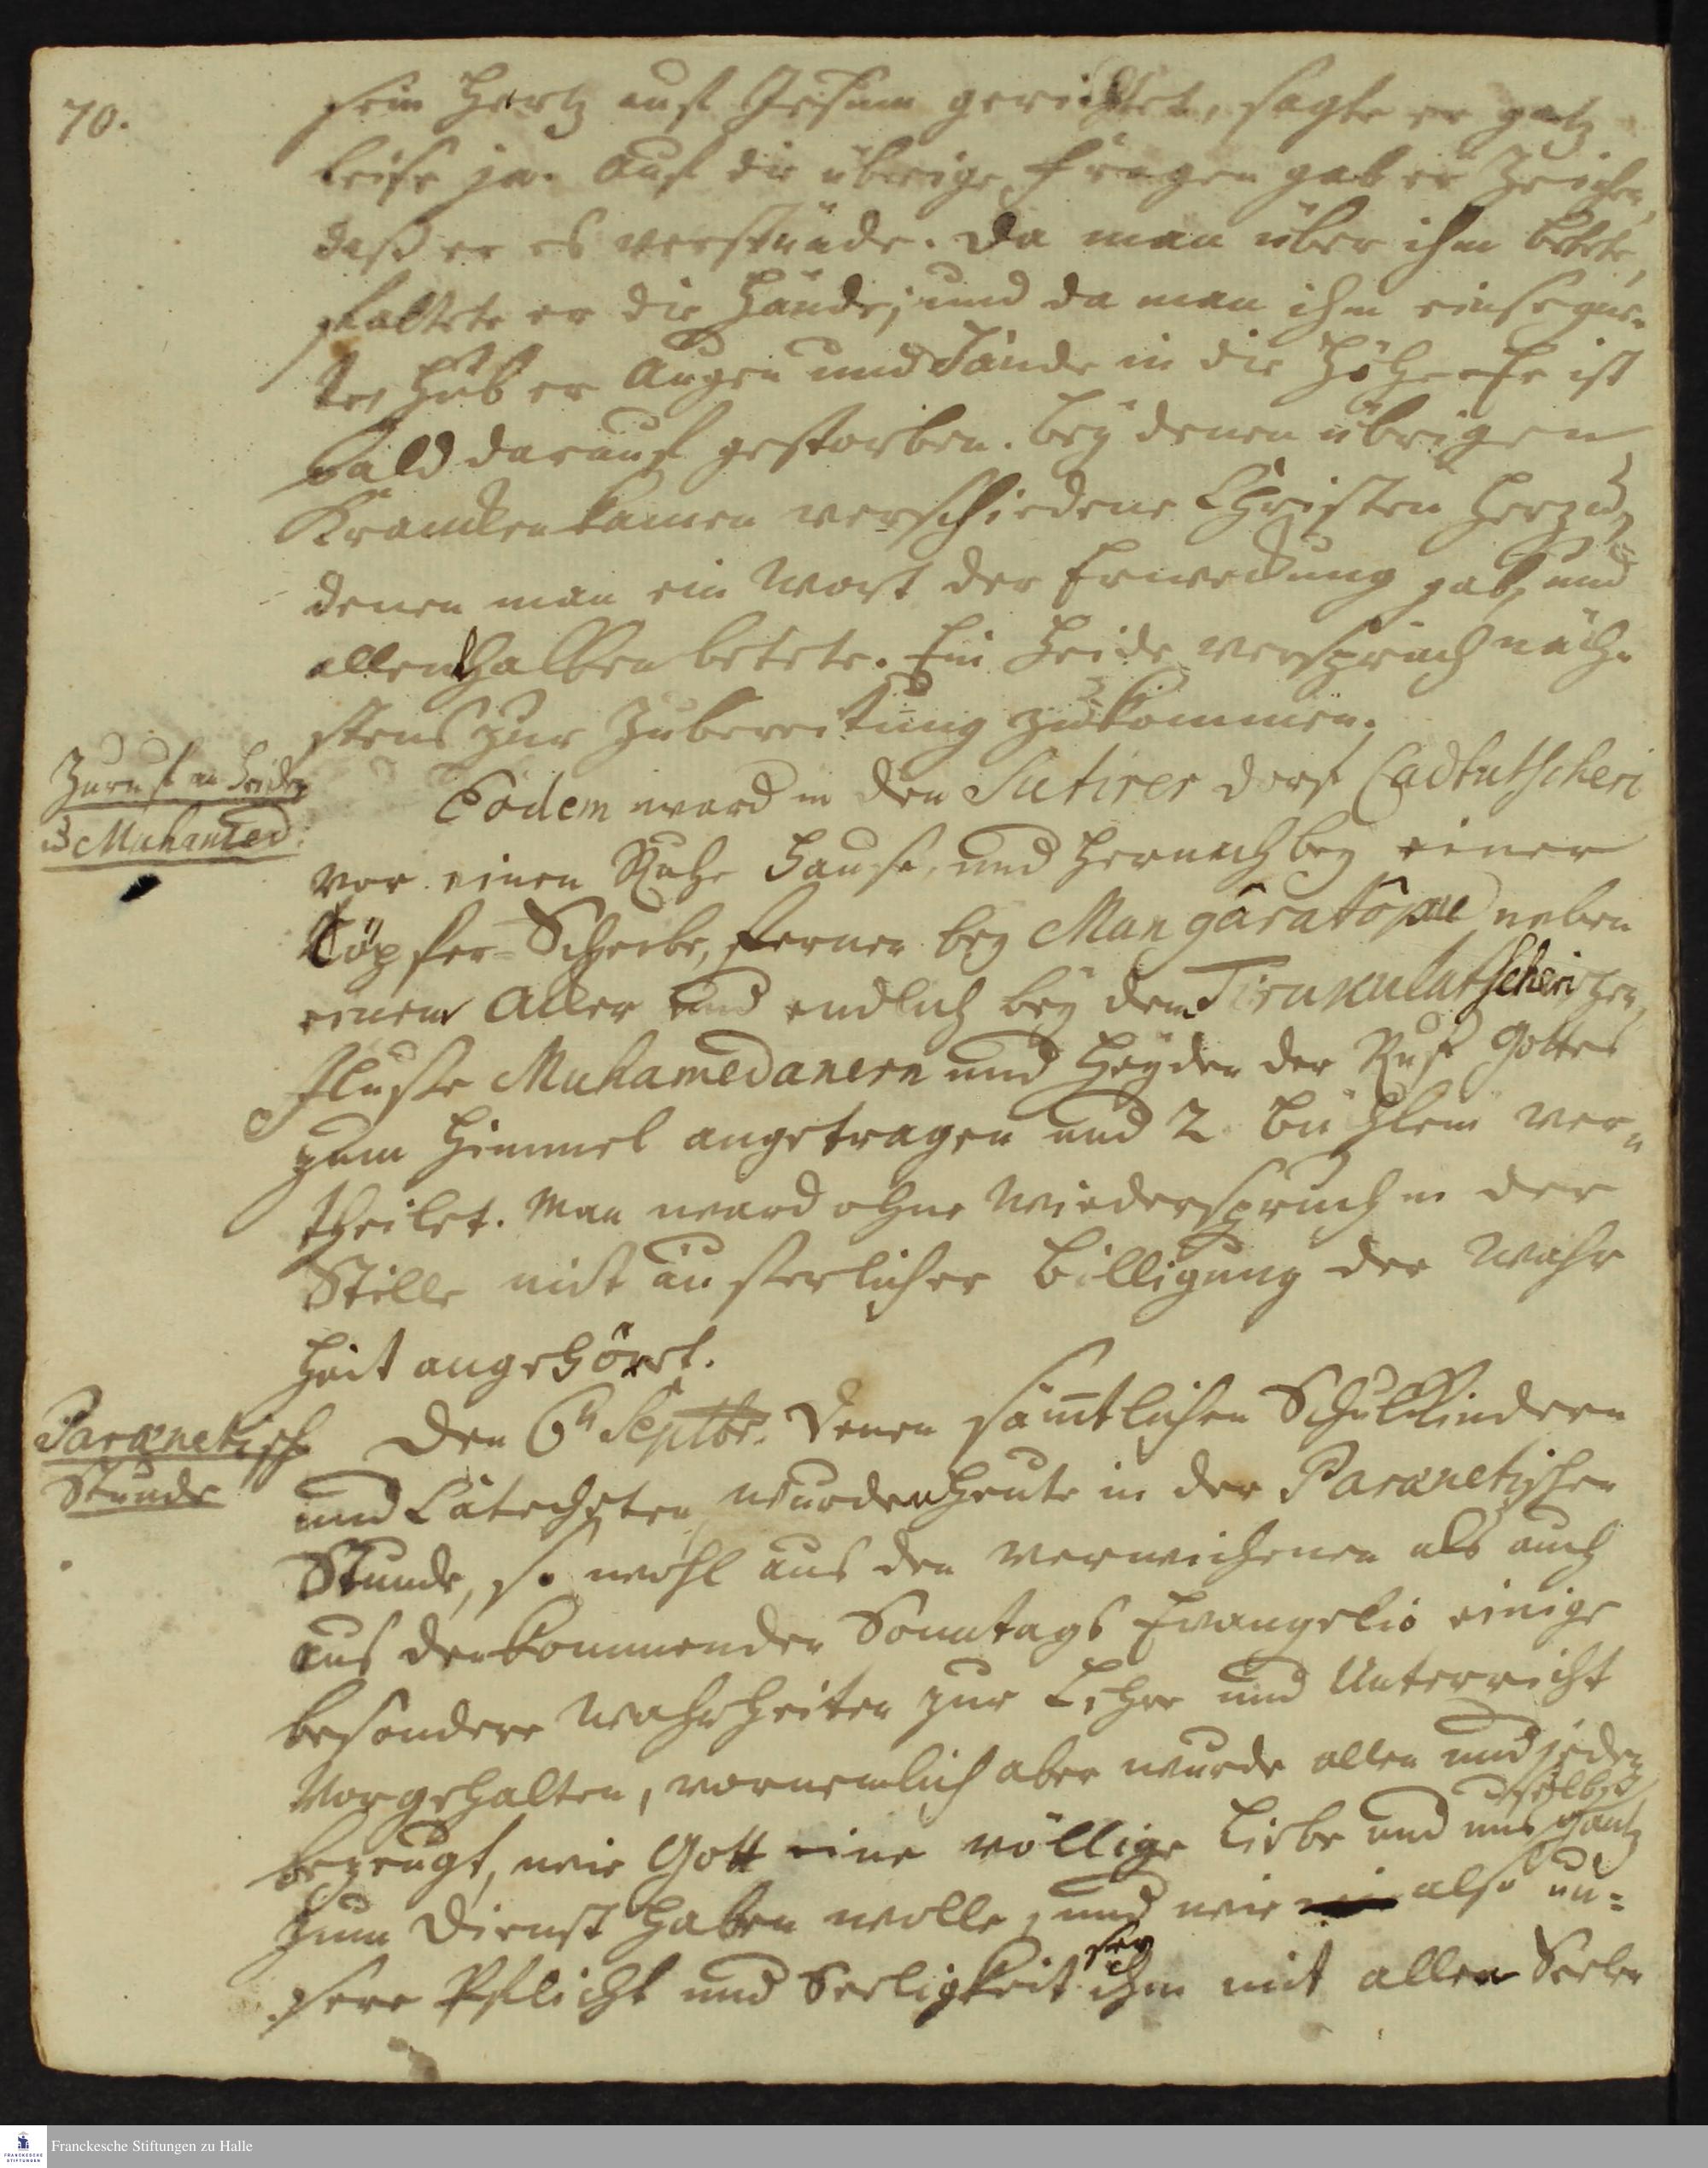 70.
sein Hertz auf Jesum gerichtet, sagte er gantz
leise ja. Auf die übrige Fragen gab er Zeichen,
daß er es verstünde. Da man über ihn betete,
faltete er die Hände; und da man ihn einsegne-
te, hub er Augen und Hände in die Höhe. Er ist
bald darauf gestorben. bey denen übrigen
Krancken kamen verschiedene Christen herzu,
denen man ein Wort der Erweckung gab, und
allenthalben betete. Ein Heide versprach näch-
stens zur Zubereitung zu kommen.
Zuruf an Heiden
u Muhamed:
Eodem ward in den Sutirer dorf Cadtutscheri
vor einen Ruhe Hause, und hernach bey einer
Töpfer-Scheibe, ferner bey Mangâratôpu neben
einem Aller und endlich bey dem Tirukulatscheri
Flusse Muhamedanern und Heyden der Ruf Gottes
zum Himmel angetragen und 2 Büchlein ver-
theilet. Man ward ohne Wiederspruch in der
Stille mit äusserlicher Billigung der Wahr
heit angehöret.
Parænetische
Stunde
Den 6t Septbr. Denen sämtlichen Schulkindern
und Catecheten wurden heute in der Parænetischen
Stunde, so wohl aus den verwichenen als auch
aus den kommenden Sonntags Evangelio einige
besondere Wahrheiten zur Lehre und Unterricht
vorgehalten, vornemlich aber wurde allen und jeden
bezeugt, wie Gott eine völlige Liebe und uns selbst gantz
zum Dienst haben wolle, und wie also un-
sere Pflicht und Seeligkeit sey ihm mit allen Seelen
Franckesche Stiftungen zu Halle